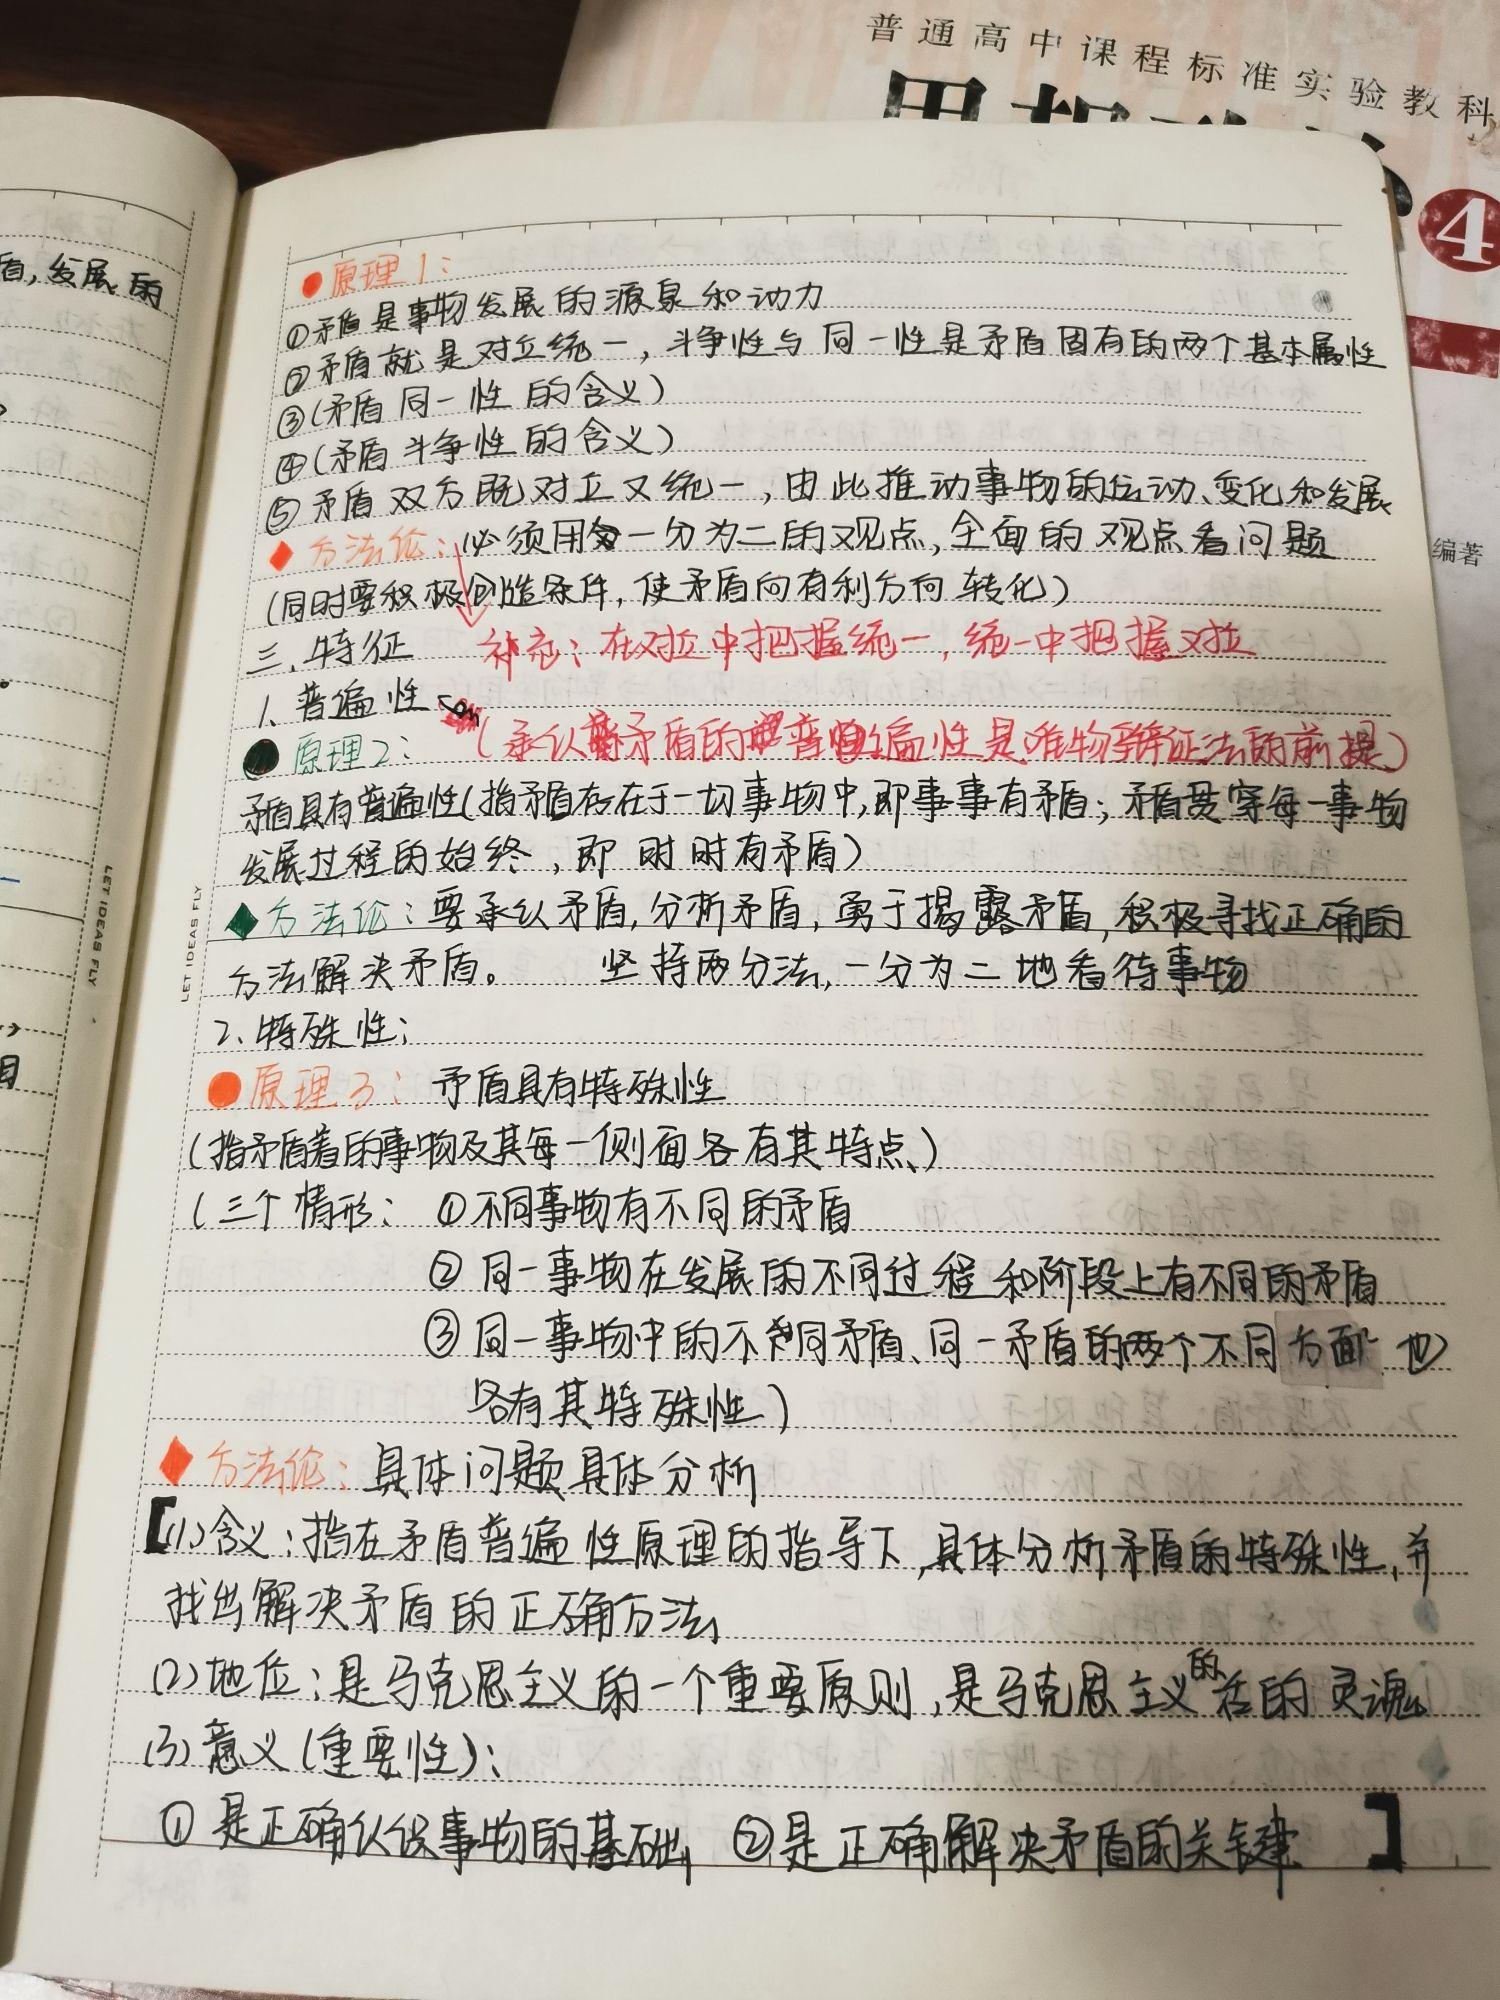 普通高中课程标准实验教科
4
编著
盾,发展的
LET IDEAS FLY
LET IDEAS FLY
●原理1:
①矛盾是事物发展的源泉和动力
②矛盾就是对立统一,斗争性与同一性是矛盾固有的两个基本属性
③(矛盾同一性的含义)
④(矛盾斗争性的含义)
⑤矛盾双方既对立又统一,由此推动事物的运动、变化和发展
◆方法论:必须用一分为二的观点,全面的观点看问题
(同时要积极创造条件,使矛盾向有利方向转化)
三、特征 补充:在对立中把握统一,统一中把握对立
1、普遍性
●原理2:(承认矛盾的普遍性是唯物辩证法的前提)
矛盾具有普遍性(指矛盾存在于一切事物中,即事事有矛盾;矛盾贯穿每一事物
发展过程的始终,即时时有矛盾)
◆方法论:要承认矛盾,分析矛盾,勇于揭露矛盾,积极寻找正确的
方法解决矛盾。 坚持两分法,一分为二地看待事物
2、特殊性:
●原理3:矛盾具有特殊性
(指矛盾着的事物及其每一侧面各有其特点、)
(三个情形: ①不同事物有不同的矛盾
②同一事物在发展的不同过程和阶段上有不同的矛盾
③同一事物中的不同矛盾、同一矛盾的两个不同方面也
各有其特殊性)
◆方法论:具体问题具体分析
【(1)含义:指在矛盾普遍性原理的指导下,具体分析矛盾的特殊性,并
找出解决矛盾的正确方法
(2)地位:是马克思主义的一个重要原则,是马克思主义的活的灵魂
(3)意义(重要性):
①是正确认识事物的基础 ②是正确解决矛盾的关键】